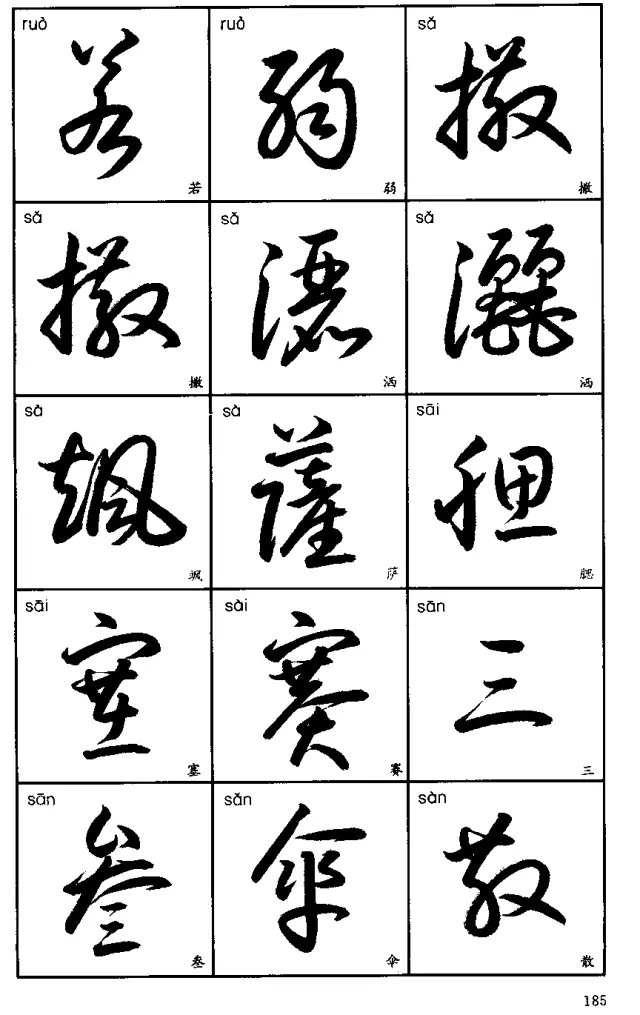 ruò ruò sǎ
若 弱 撒
若 弱 撒
sǎ sǎ sǎ
撒 洒 灑
撒 洒 洒
sà sà sāi
颯 薩 腮
飒 萨 腮
sāi sài sān
塞 賽 三
塞 赛 三
sān sǎn sàn
叁 傘 散
叁 伞 散
185